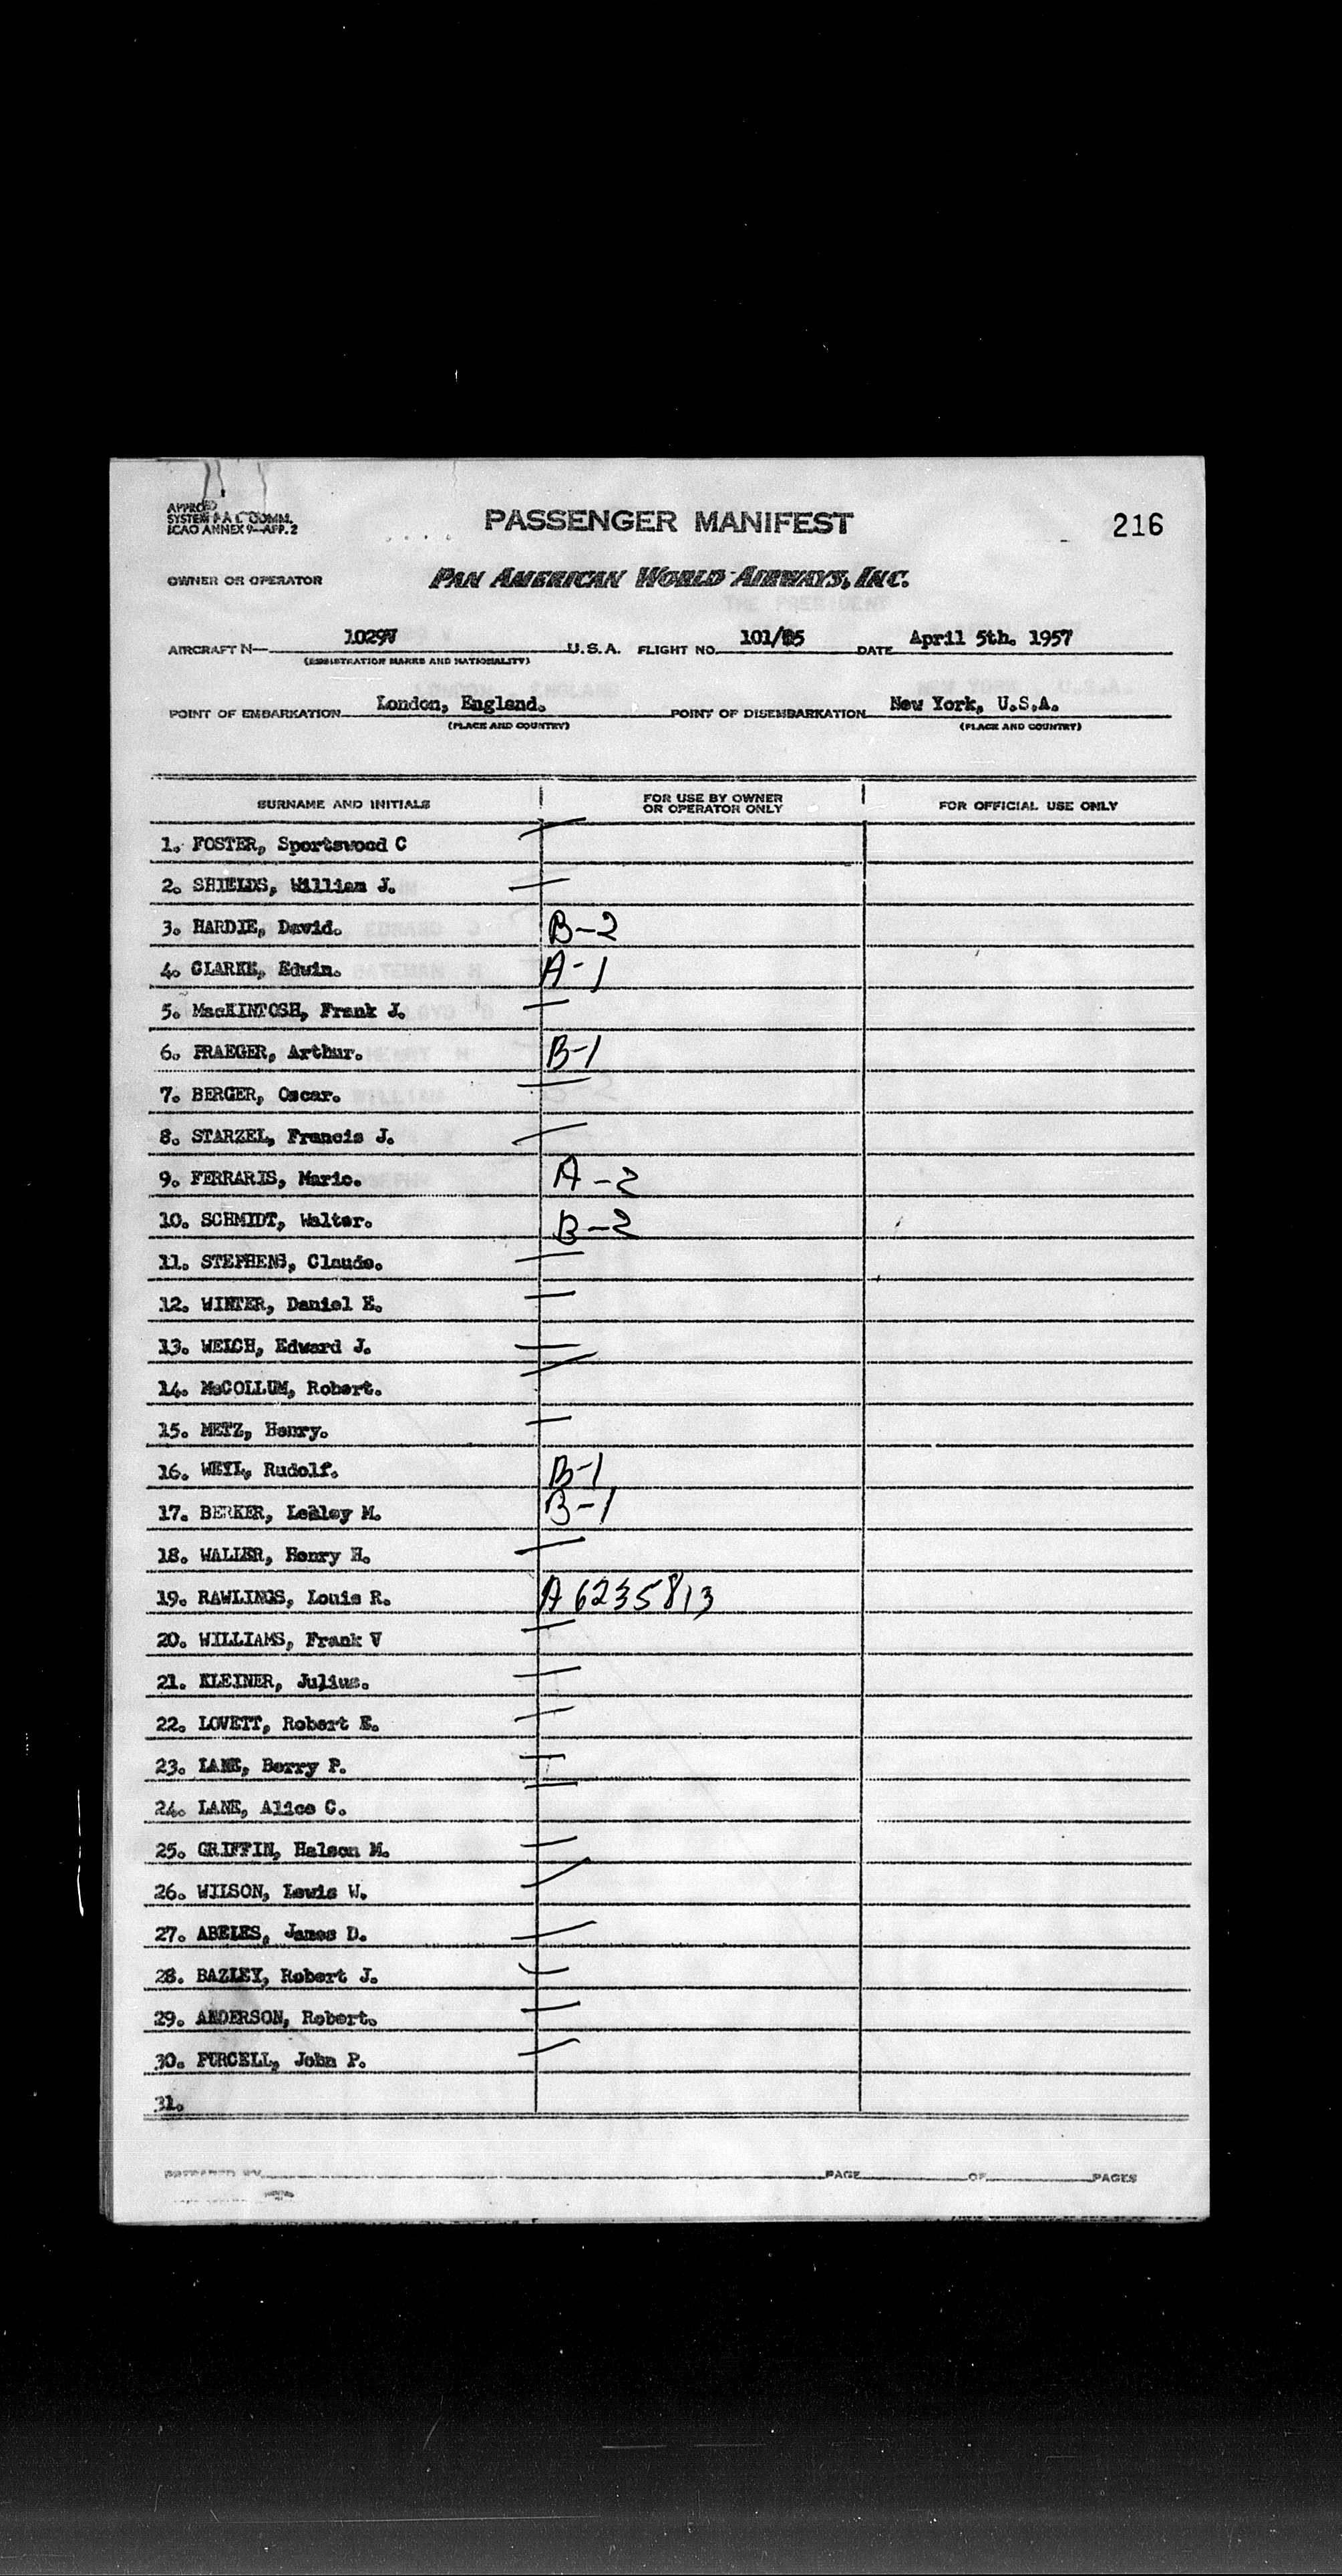 APPROED
SYSTEM P.A.L. COMM.
ICAO ANNEX 9—APP. 2
PASSENGER MANIFEST
216
OWNER OR OPERATOR
PAN AMERICAN WORLD AIRWAYS, INC.
AIRCRAFT N— 1029V U.S.A. FLIGHT NO. 101/05 DATE April 5th. 1957
(REGISTRATION MARKS AND NATIONALITY)
POINT OF EMBARKATION London, England. POINT OF DISEMBARKATION New York, U.S.A.
(PLACE AND COUNTRY) (PLACE AND COUNTRY)
SURNAME AND INITIALS FOR USE BY OWNER OR OPERATOR ONLY FOR OFFICIAL USE ONLY
1. FOSTER, Sportswood C
2. SHIELDS, William J.
3. HARDIE, David. B-2
4. CLARKE, Edwin. A-1
5. MacKINTOSH, Frank J.
6. PRAEGER, Arthur. B-1
7. BERGER, Oscar.
8. STARZEL, Francis J.
9. FERRARIS, Mario. A-2
10. SCHMIDT, Walter. B-2
11. STEPHENS, Claude.
12. WINTER, Daniel E.
13. WELCH, Edward J.
14. McCOLLUM, Robert.
15. METZ, Henry.
16. WEYL, Rudolf. B-1
17. BERKER, Lesley M. B-1
18. WALLER, Henry H.
19. RAWLINGS, Louis R. A 6235813
20. WILLIAMS, Frank V
21. KLEINER, Julius.
22. LOVETT, Robert E.
23. LANE, Berry P.
24. LANE, Alice C.
25. GRIFFIN, Halson M.
26. WILSON, Lewis W.
27. ABELES, James D.
28. BAZLEY, Robert J.
29. ANDERSON, Robert.
30. PURCELL, John P.
31.
PREPARED BY PAGE OF PAGES